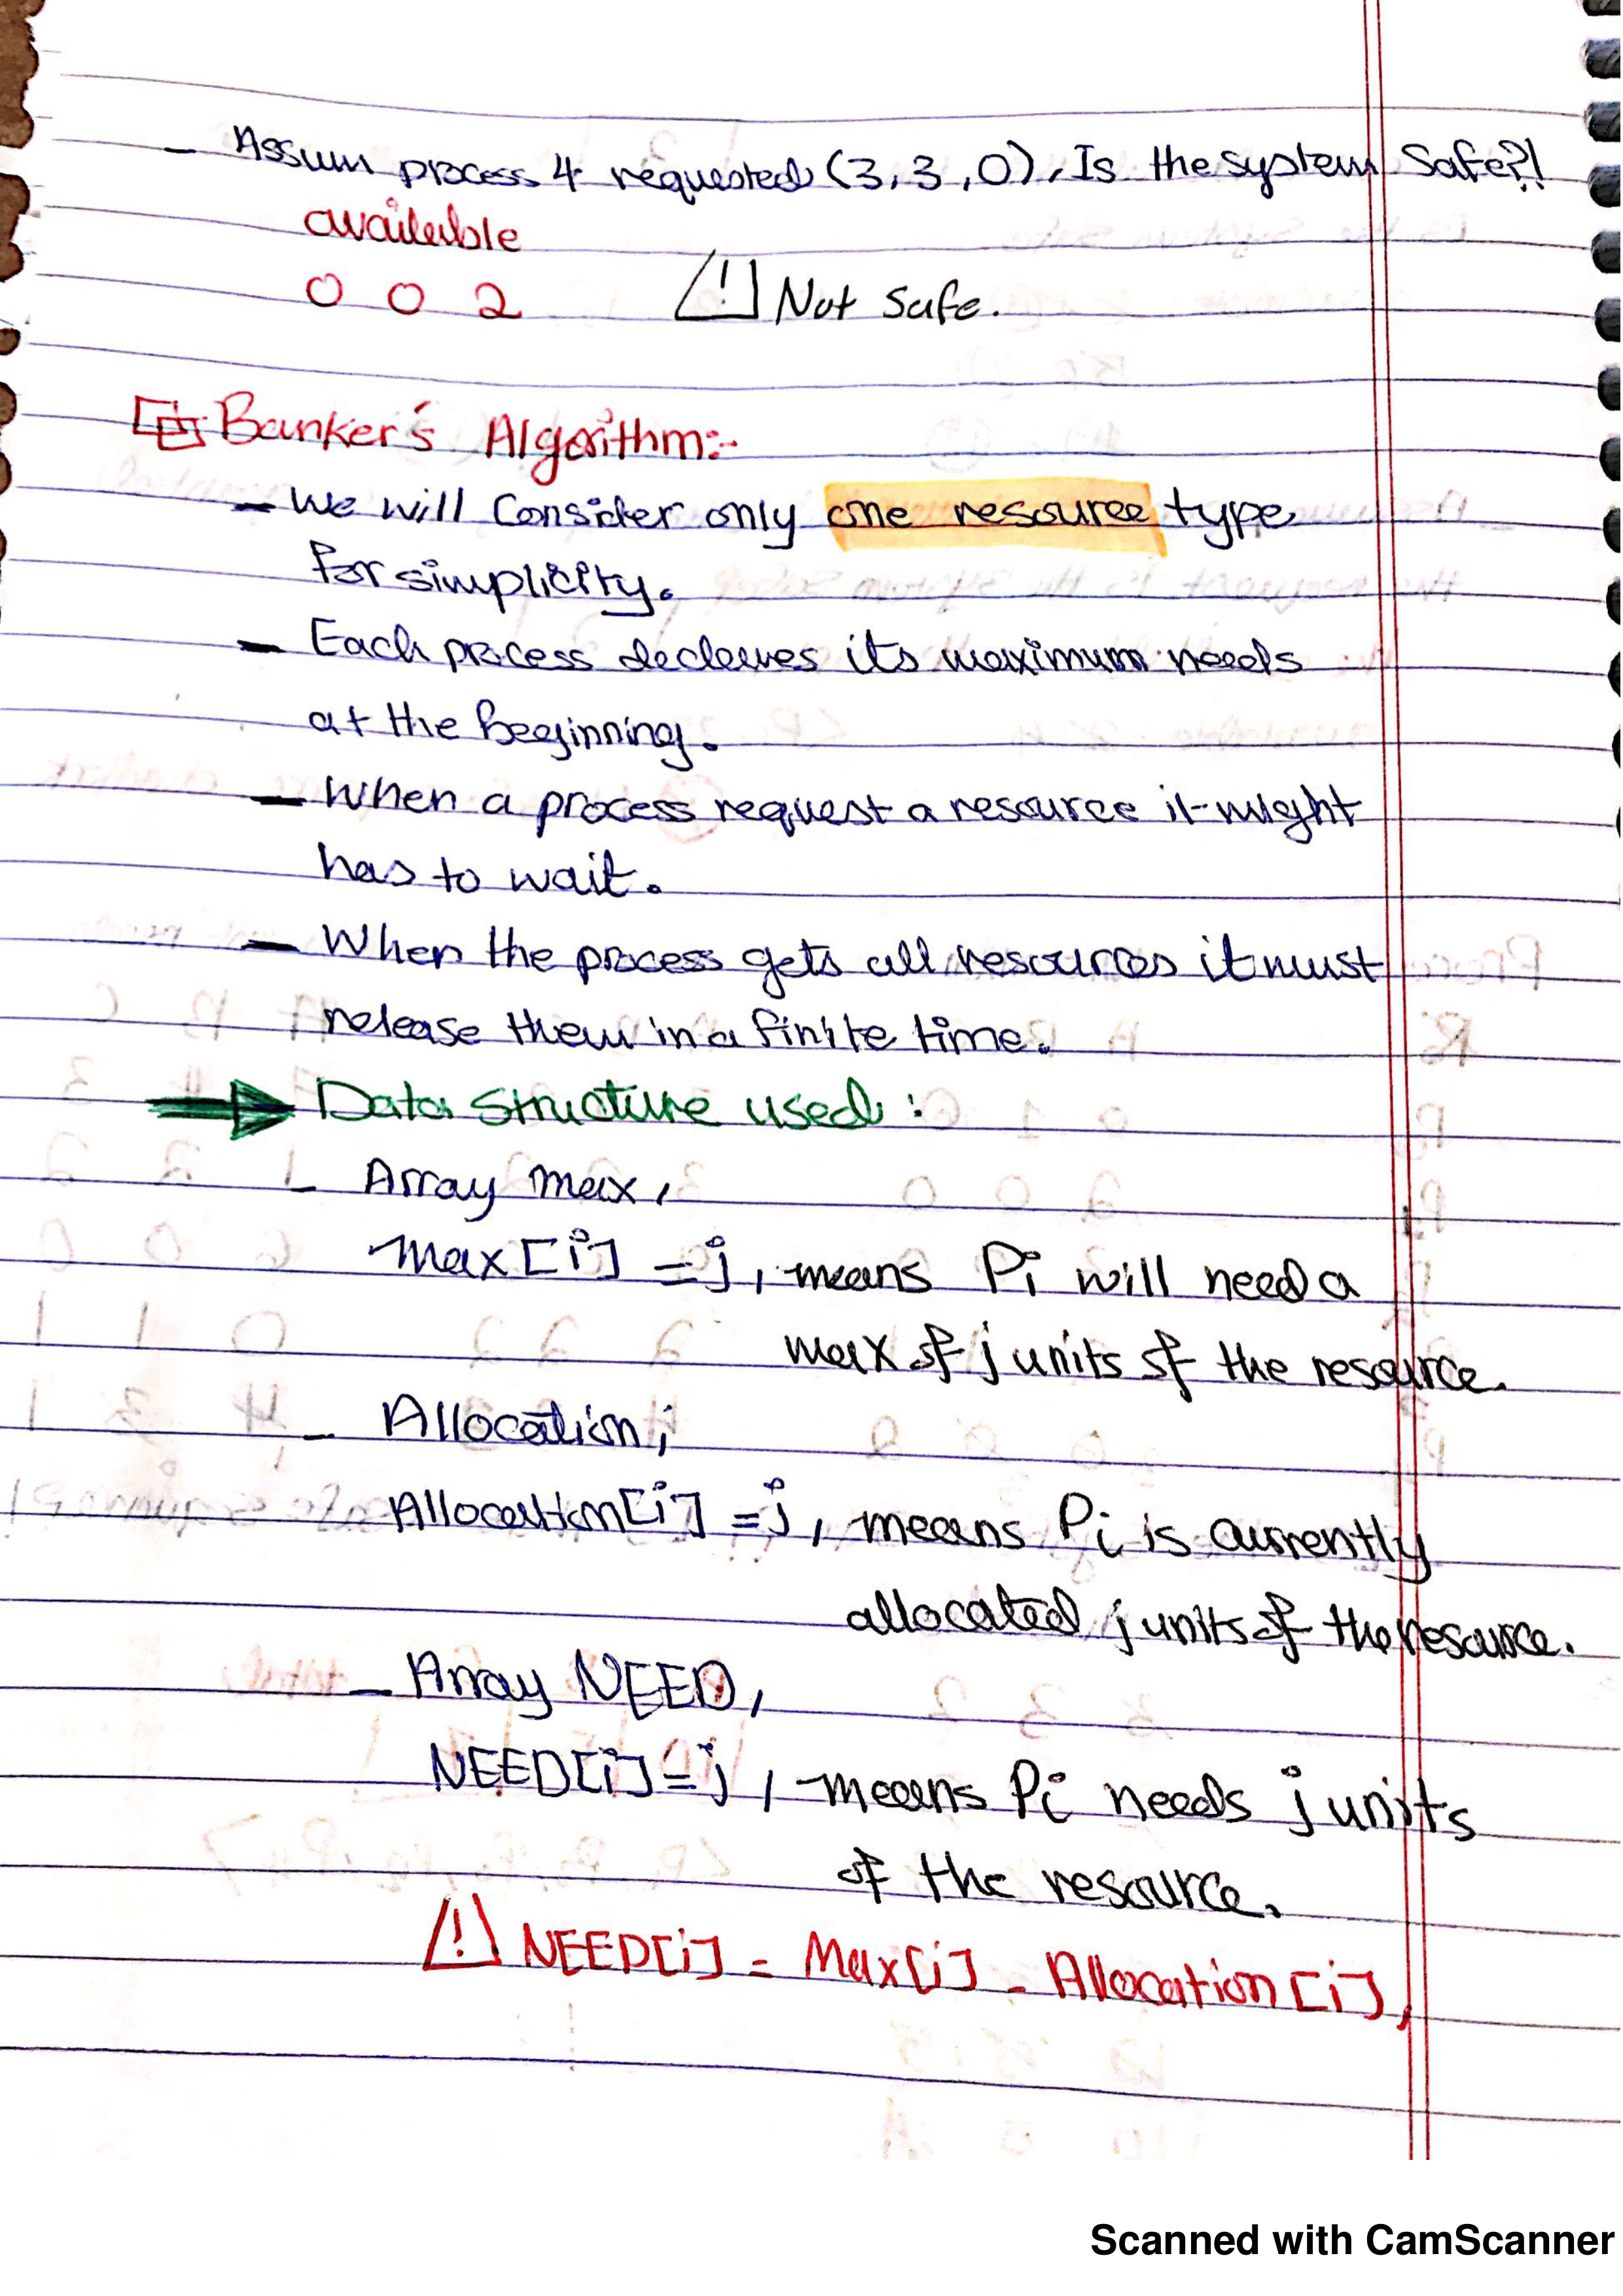 - Assum process 4 requested (3,3,0), Is the system Safe?!
available
0 0 2 ! Not Safe.
Banker's Algorithm:-
- We will Consider only one resource type
for simplicity.
- Each process declares its maximum needs
at the Beginning.
- When a process request a resource it might
has to wait.
- When the process gets all resources it must
release them in a finite time.
Data Structure used :
- Array max,
Max[i] = j, means Pi will need a
max of j units of the resource.
- Allocation,
Allocation[i] = j, means Pi is currently
allocated j units of the resource.
- Array NEED,
NEED[i] = j, means Pi needs j units
of the resource.
! NEED[i] = Max[i] - Allocation[i],
Scanned with CamScanner